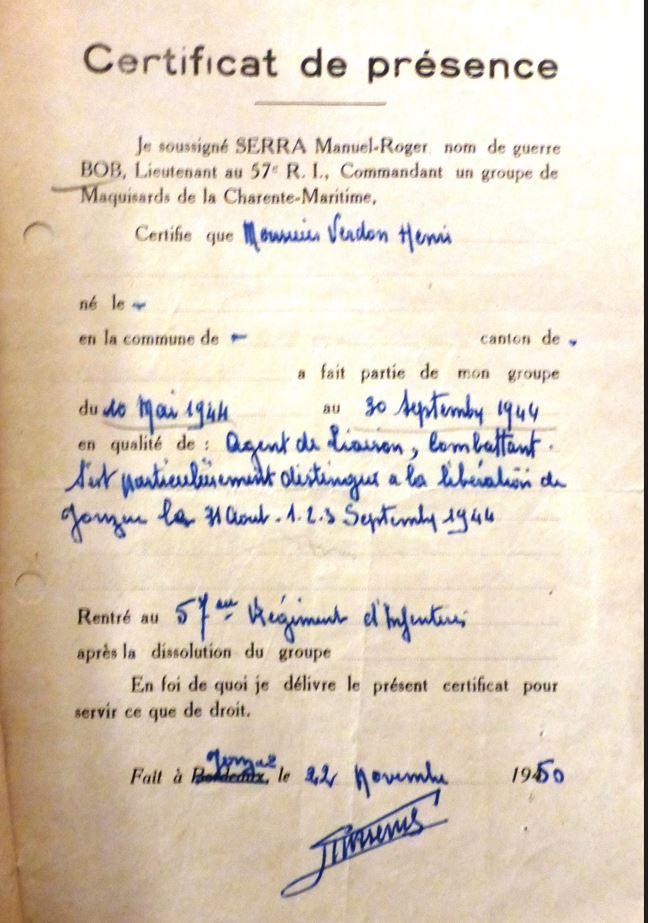 Certificat de présence
Je soussigné SERRA Manuel-Roger, nom de guerre
BOB, Lieutenant au 57e R. I., Commandant un groupe de
Maquisards de la Charente-Maritime,
Certifie que Monsieur Verdon Henri
né le -
en la commune de - canton de -
a fait partie de mon groupe
du 10 Mai 1944 au 30 Septembre 1944
en qualité de : Agent de Liaison, Combattant.
S'est particulièrement distingué a la libération de
Jonzac les 31 Aout - 1. 2. 3 Septembre 1944
Rentré au 57eme Régiment d'Infanterie
après la dissolution du groupe
En foi de quoi je délivre le présent certificat pour
servir ce que de droit.
Jonzac
Fait à Bordeaux, le 22 Novembre 1950